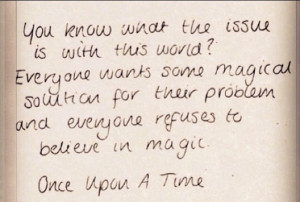 You know what the issue
is with this world?
Everyone wants some magical
solution for their problem
and everyone refuses to
believe in magic.
Once Upon A Time